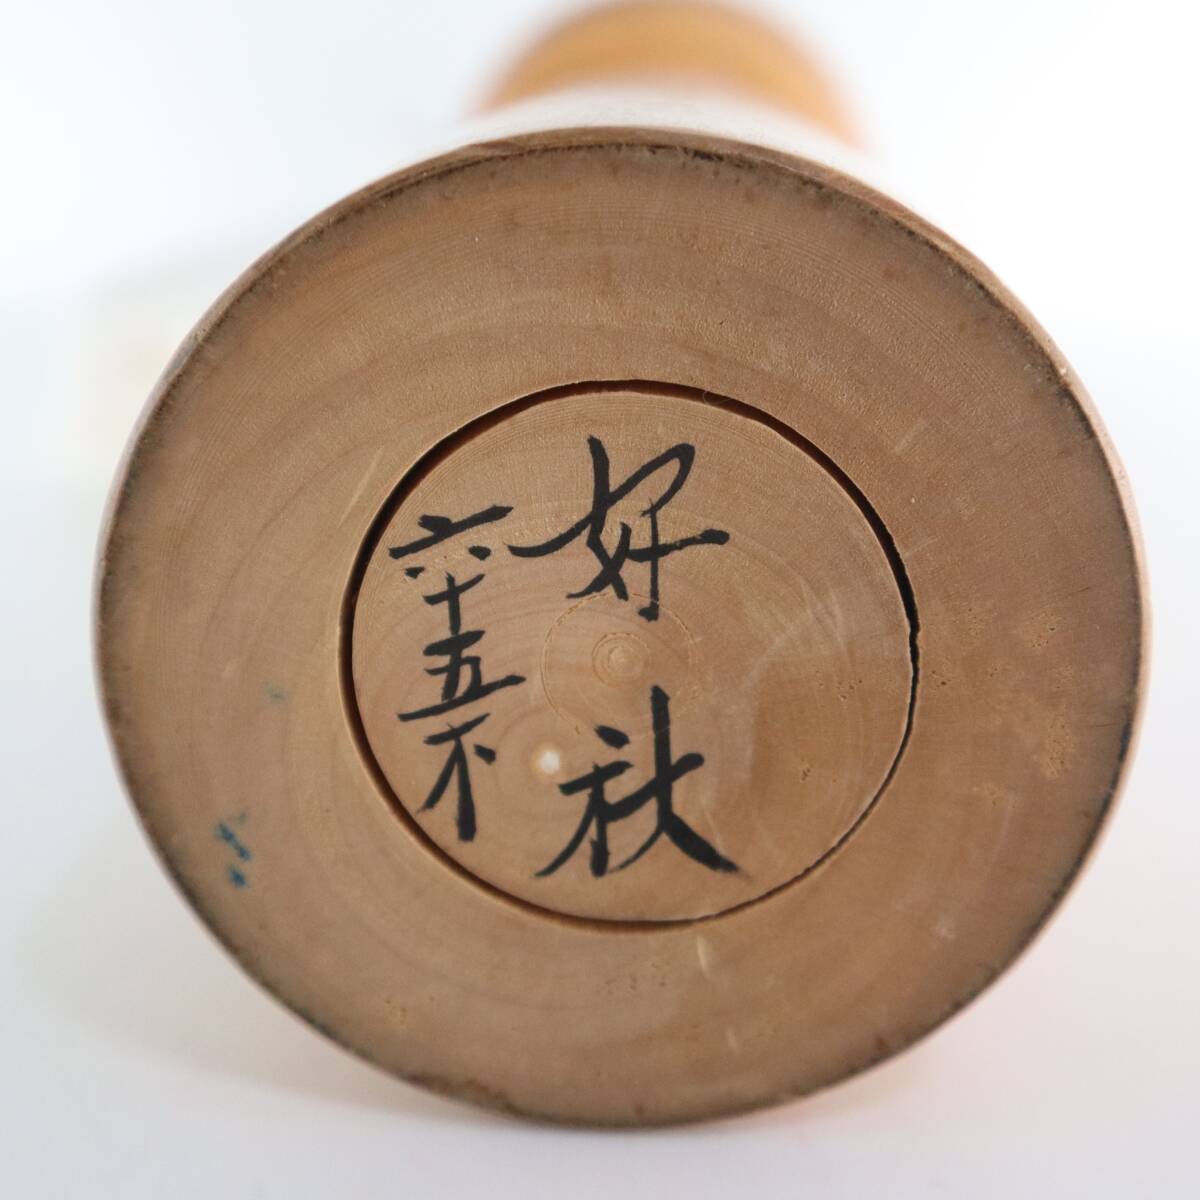 好秋
六十五才